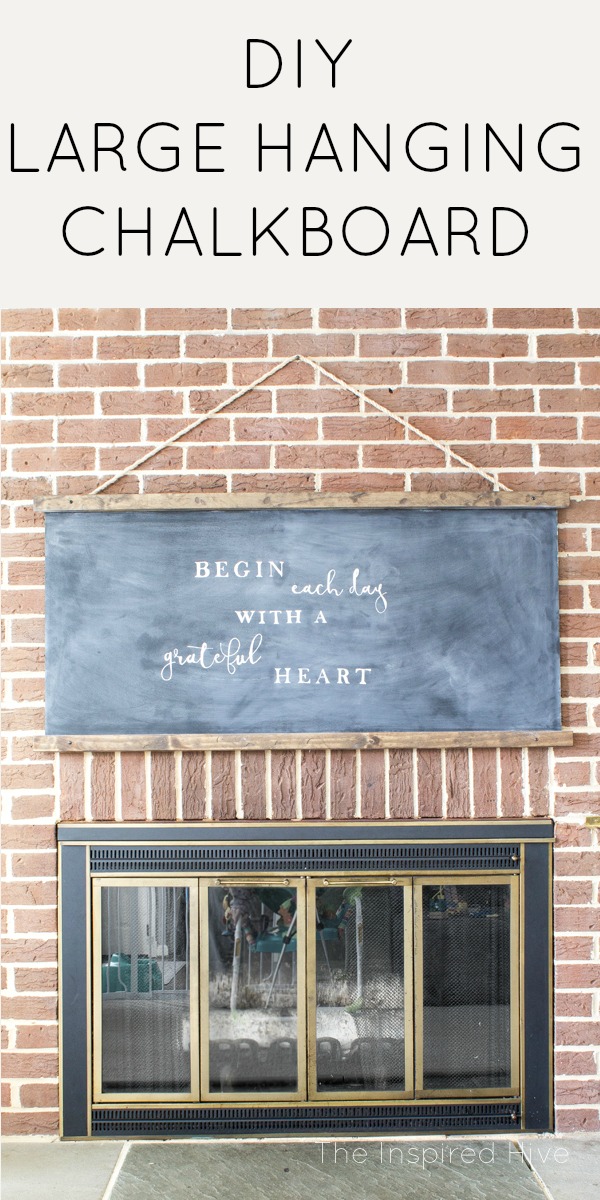 DIY
LARGE HANGING
CHALKBOARD
BEGIN each day
WITH A
grateful HEART
The Inspired Hive